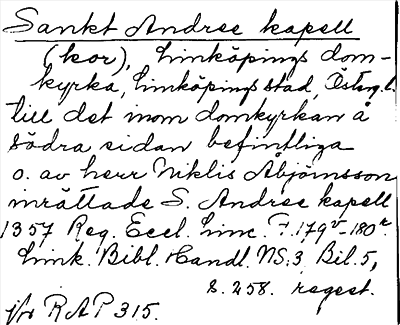 Sankt Andree kapell
(kor), Linköpings dom-
kyrka, Linköpings stad, Östergl.
till det inom domkyrkan å
södra sidan befintliga
o. av herr Niklis Abjörnsson
inrättade S. Andree kapell
1357 Reg. Eccl. Linc. F. 179v-180r.
Link. Bibl. Handl. NS:3, Bil. 5,
s. 258. regest.
jfr RAP 315.